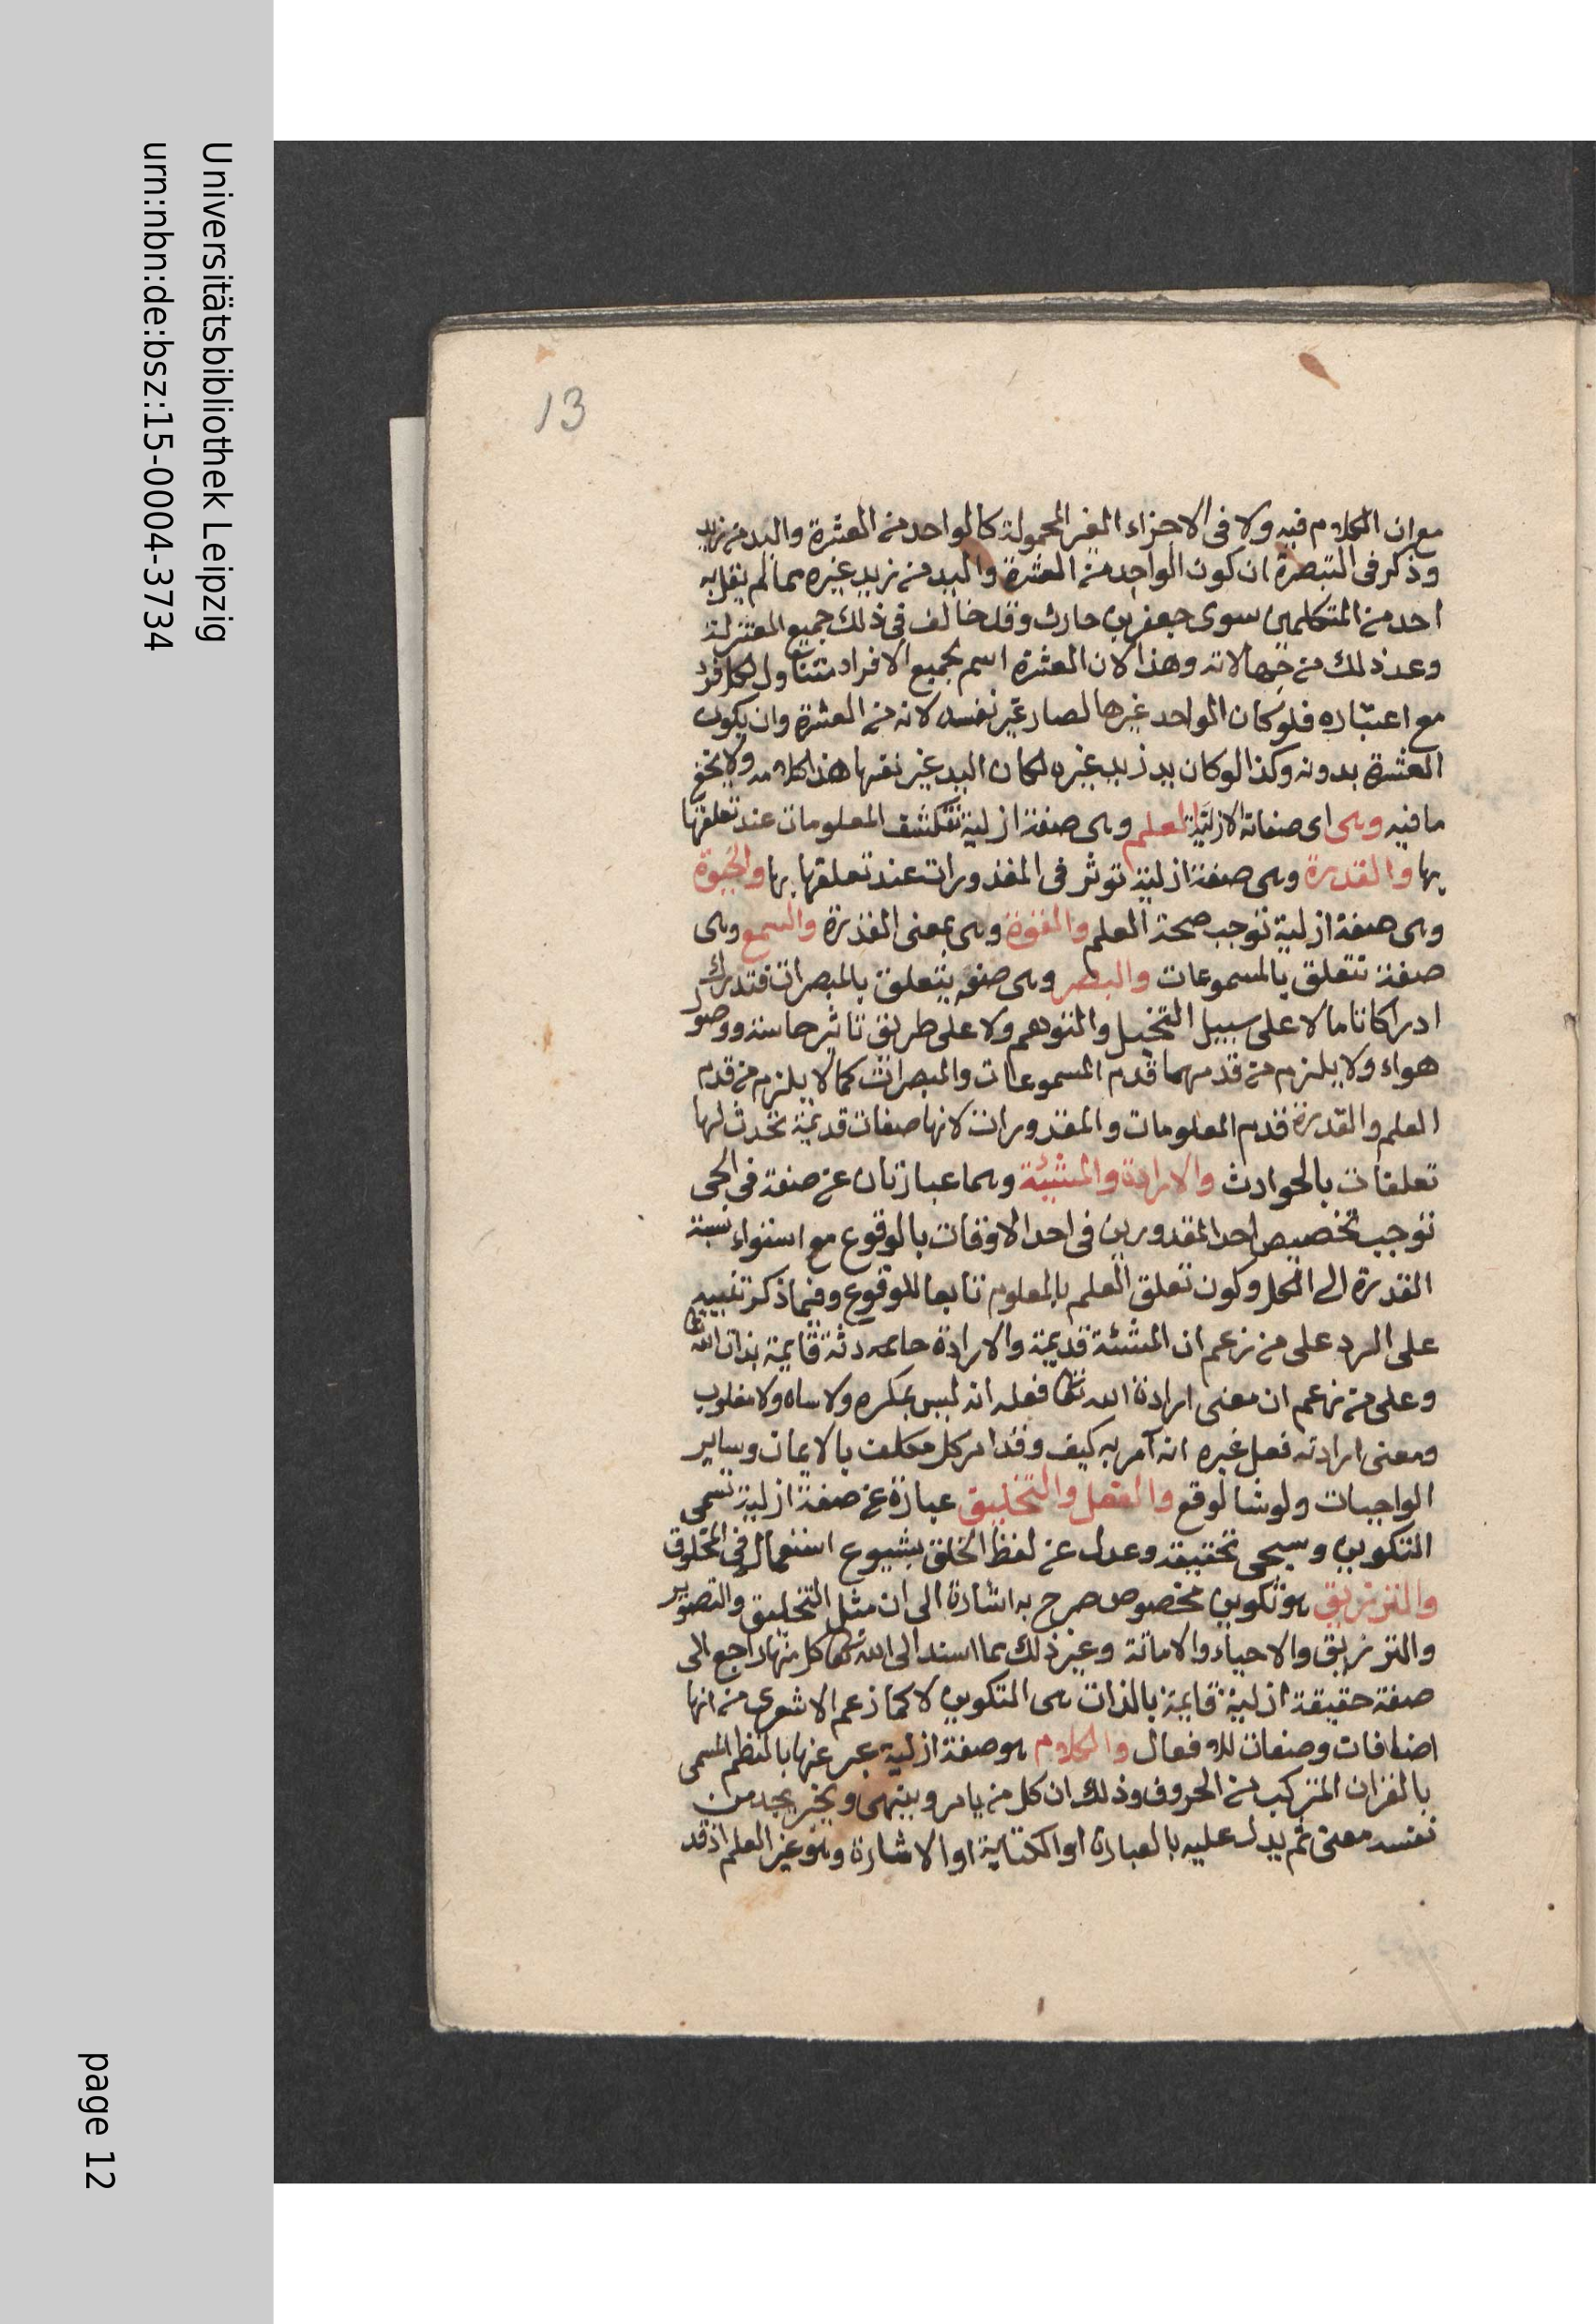 Universitätsbibliothek Leipzig
urn:nbn:de:bsz:15-0004-3734
13
مع ان الكلام فيه ولا فى الاجزاء الغير المحمولة كالواحد من العشرة واليد من زيد
وذكر فى التبصرة ان كون الواحد من العشرة واليد من زيد غيره مما لم يقل به
احد من المتكلمين سوى جعفر بن حارث وقد خالف فى ذلك جميع المعتزلة
وعد ذلك من جهالاته وهذا لان العشرة اسم لجميع الافراد متناول لكل فرد
مع اعتباره فلو كان الواحد غيرها لصار غير نفسه لانه من العشرة وان يكون
العشرة بدونه وكذا لو كان يد زيد غيره لكان اليد غير نفسها هذا كلامه ولا يخفى
ما فيه وهى اى صفاته الازلية العلم وهى صفة ازلية تنكشف المعلومات عند تعلقها
بها والقدرة وهى صفة ازلية توثر فى المقدورات عند تعلقها بها والحيوة
وهى صفة ازلية توجب صحة العلم والقوة وهى بمعنى القدرة والسمع وهى
صفة تتعلق بالمسموعات والبصر وهى صفة يتعلق بالمبصرات فتدرك
ادراكا تاما لا على سبيل التخيل والتوهم ولا على طريق تاثير حاسة ووصول
هواء ولا يلزم من قدمهما قدم المسموعات والمبصرات كما لا يلزم من قدم
العلم والقدرة قدم المعلومات والمقدورات لانها صفات قديمة تحدث لها
تعلقات بالحوادث والارادة والمشيئة وهما عبارتان عن صفة فى الحى
توجب تخصيص احد المقدورين فى احد الاوقات بالوقوع مع استواء نسبة
القدرة الى الكل وكون تعلق العلم بالمعلوم تابعا للوقوع وفيما ذكر تنبيه
على الرد على من زعم ان المشئة قديمة والارادة حادثة قايمة بذات الله تعا
وعلى من زعم ان معنى ارادة الله تعا فعله انه ليس بمكره ولا ساه ولا مغلوب
ومعنى ارادته فعل غيره انه آمر به كيف وقد امر كل مكلف بالايمان وساير
الواجبات ولو شا لوقع والفعل والتخليق عبارة عن صفة ازلية تسمى
التكوين وسيجى تحقيقه وعدل عن لفظ الخلق بشيوع استعماله فى المخلوق
والترزيق هو تكوين مخصوص صرح به اشارة الى ان مثل التخليق والتصوير
والترزيق والاحياء والاماتة وغير ذلك مما اسند الى الله تعا كل منها راجع الى
صفة حقيقة ازلية قايمة بالذات هى التكوين لا كما زعم الاشعرى من انها
اضافات وصفات للافعال والكلام هو صفة ازلية عبر عنها بالنظم المسمى
بالقران المتركب من الحروف وذلك ان كل من يامر وينهى ويخبر يجد من
نفسه معنى ثم يدل عليه بالعبارة او الكتابة او الاشارة وهو غير العلم اذ قد
page 12